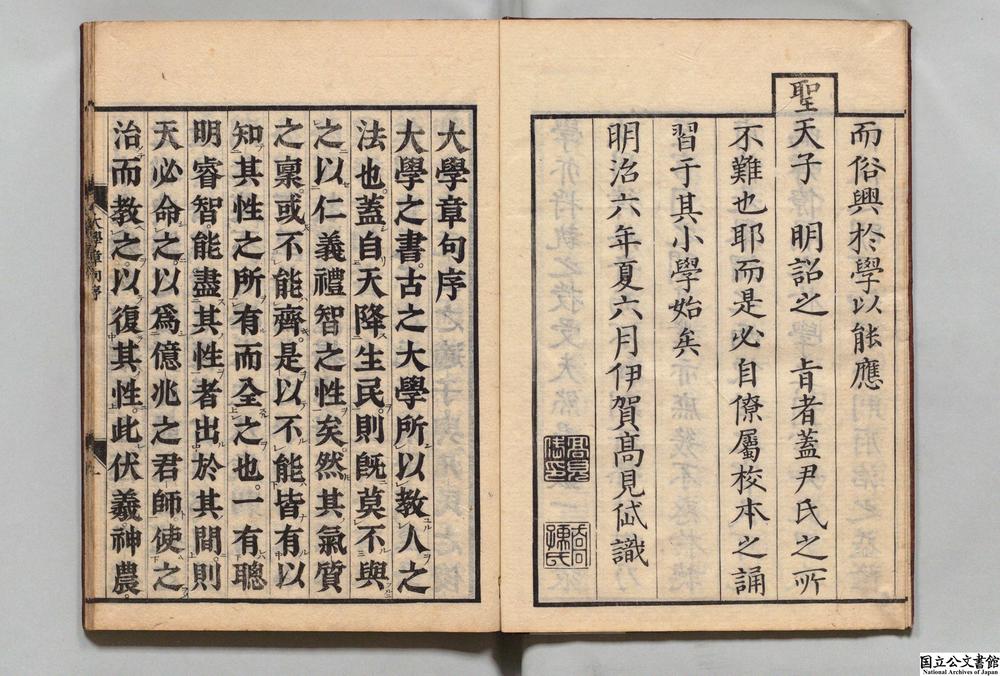 而俗興於學以能應
聖天子 明詔之 旨者蓋尹氏之所
不難也耶而是必自僚屬校本之誦
習于其小學始矣
明治六年夏六月伊賀高見岱識
大學章句序
大學之書古之大學所以教人之
法也。蓋自天降生民。則既莫不與
之以仁義禮智之性矣。然其氣質
之稟。或不能齊。是以不能皆有以
知其性之所有而全之也。一有聰
明睿智。能盡其性者出於其間。則
天必命之以爲億兆之君師。使之
治而教之。以復其性。此伏羲神農。
大學章句序
国立公文書館
National Archives of Japan